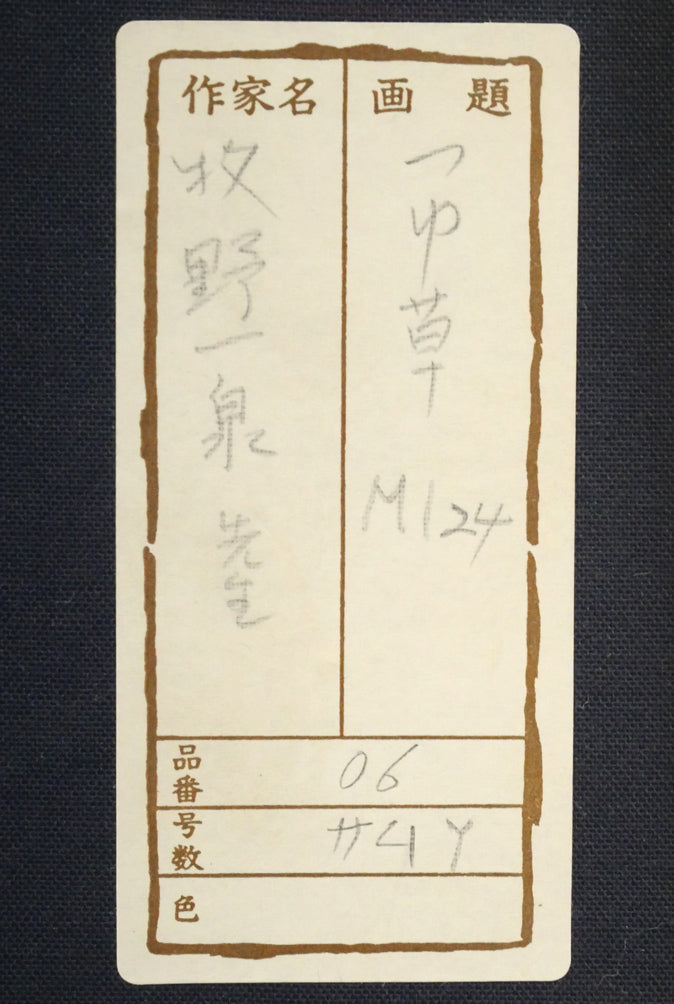 画題
つゆ草
M124
作家名
牧野一泉
先生
品番
06
号数
サム
色